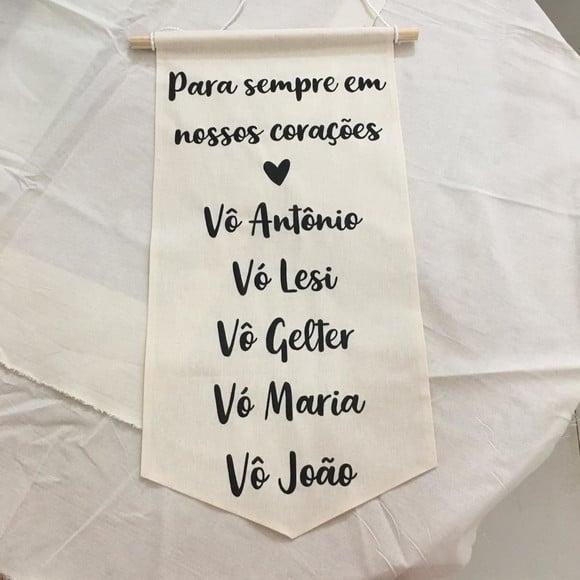 Para sempre em
nossos corações
Vô Antônio
Vó Lesi
Vô Gelter
Vó Maria
Vô João